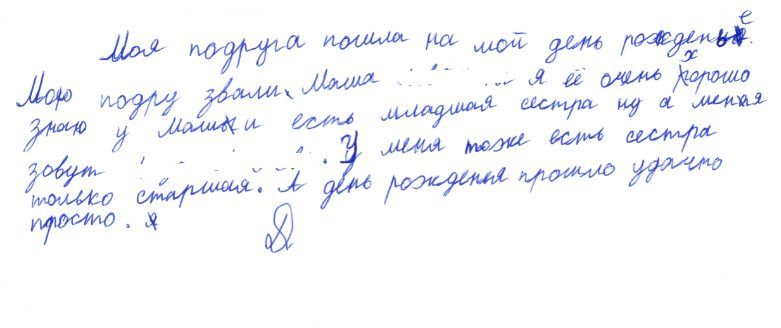 Моя подруга пошла на мой день рожденье.
Мою подру звали Маша я её очень хорошо
знаю у Маши есть младшая сестра ну а меная
зовут . У меня тоже есть сестра
только старшая. А день рожденья прошло удачно
просто. я
Д